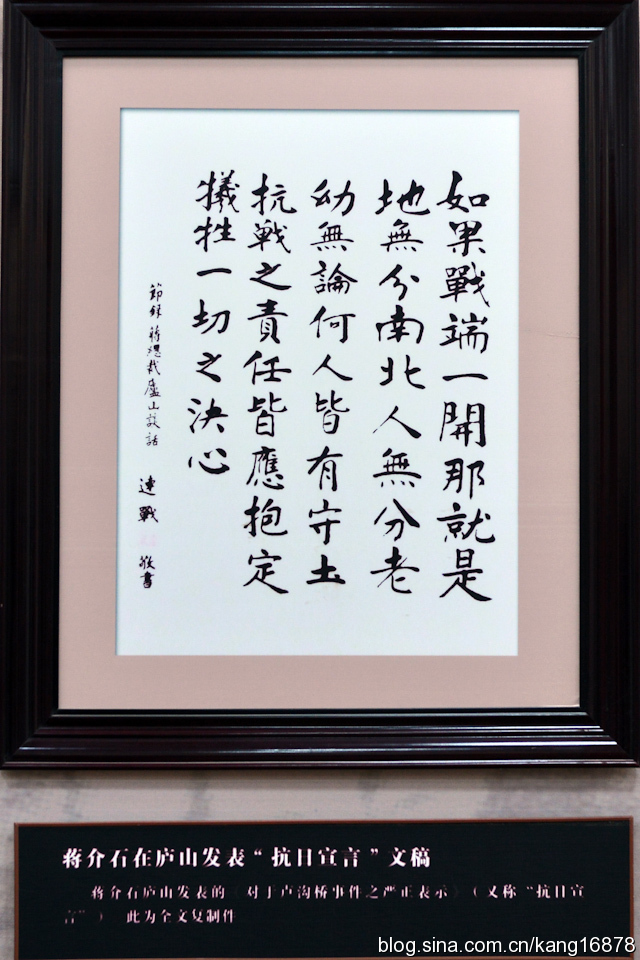 如果戰端一開那就是
地無分南北人無分老
幼無論何人皆有守土
抗戰之責任皆應抱定
犧牲一切之決心
節錄蔣總裁廬山談話
連戰 敬書
蒋介石在庐山发表“抗日宣言”文稿
蒋介石庐山发表的《对于卢沟桥事件之严正表示》（又称“抗日宣
言”） 此为全文复制件
blog.sina.com.cn/kang16878